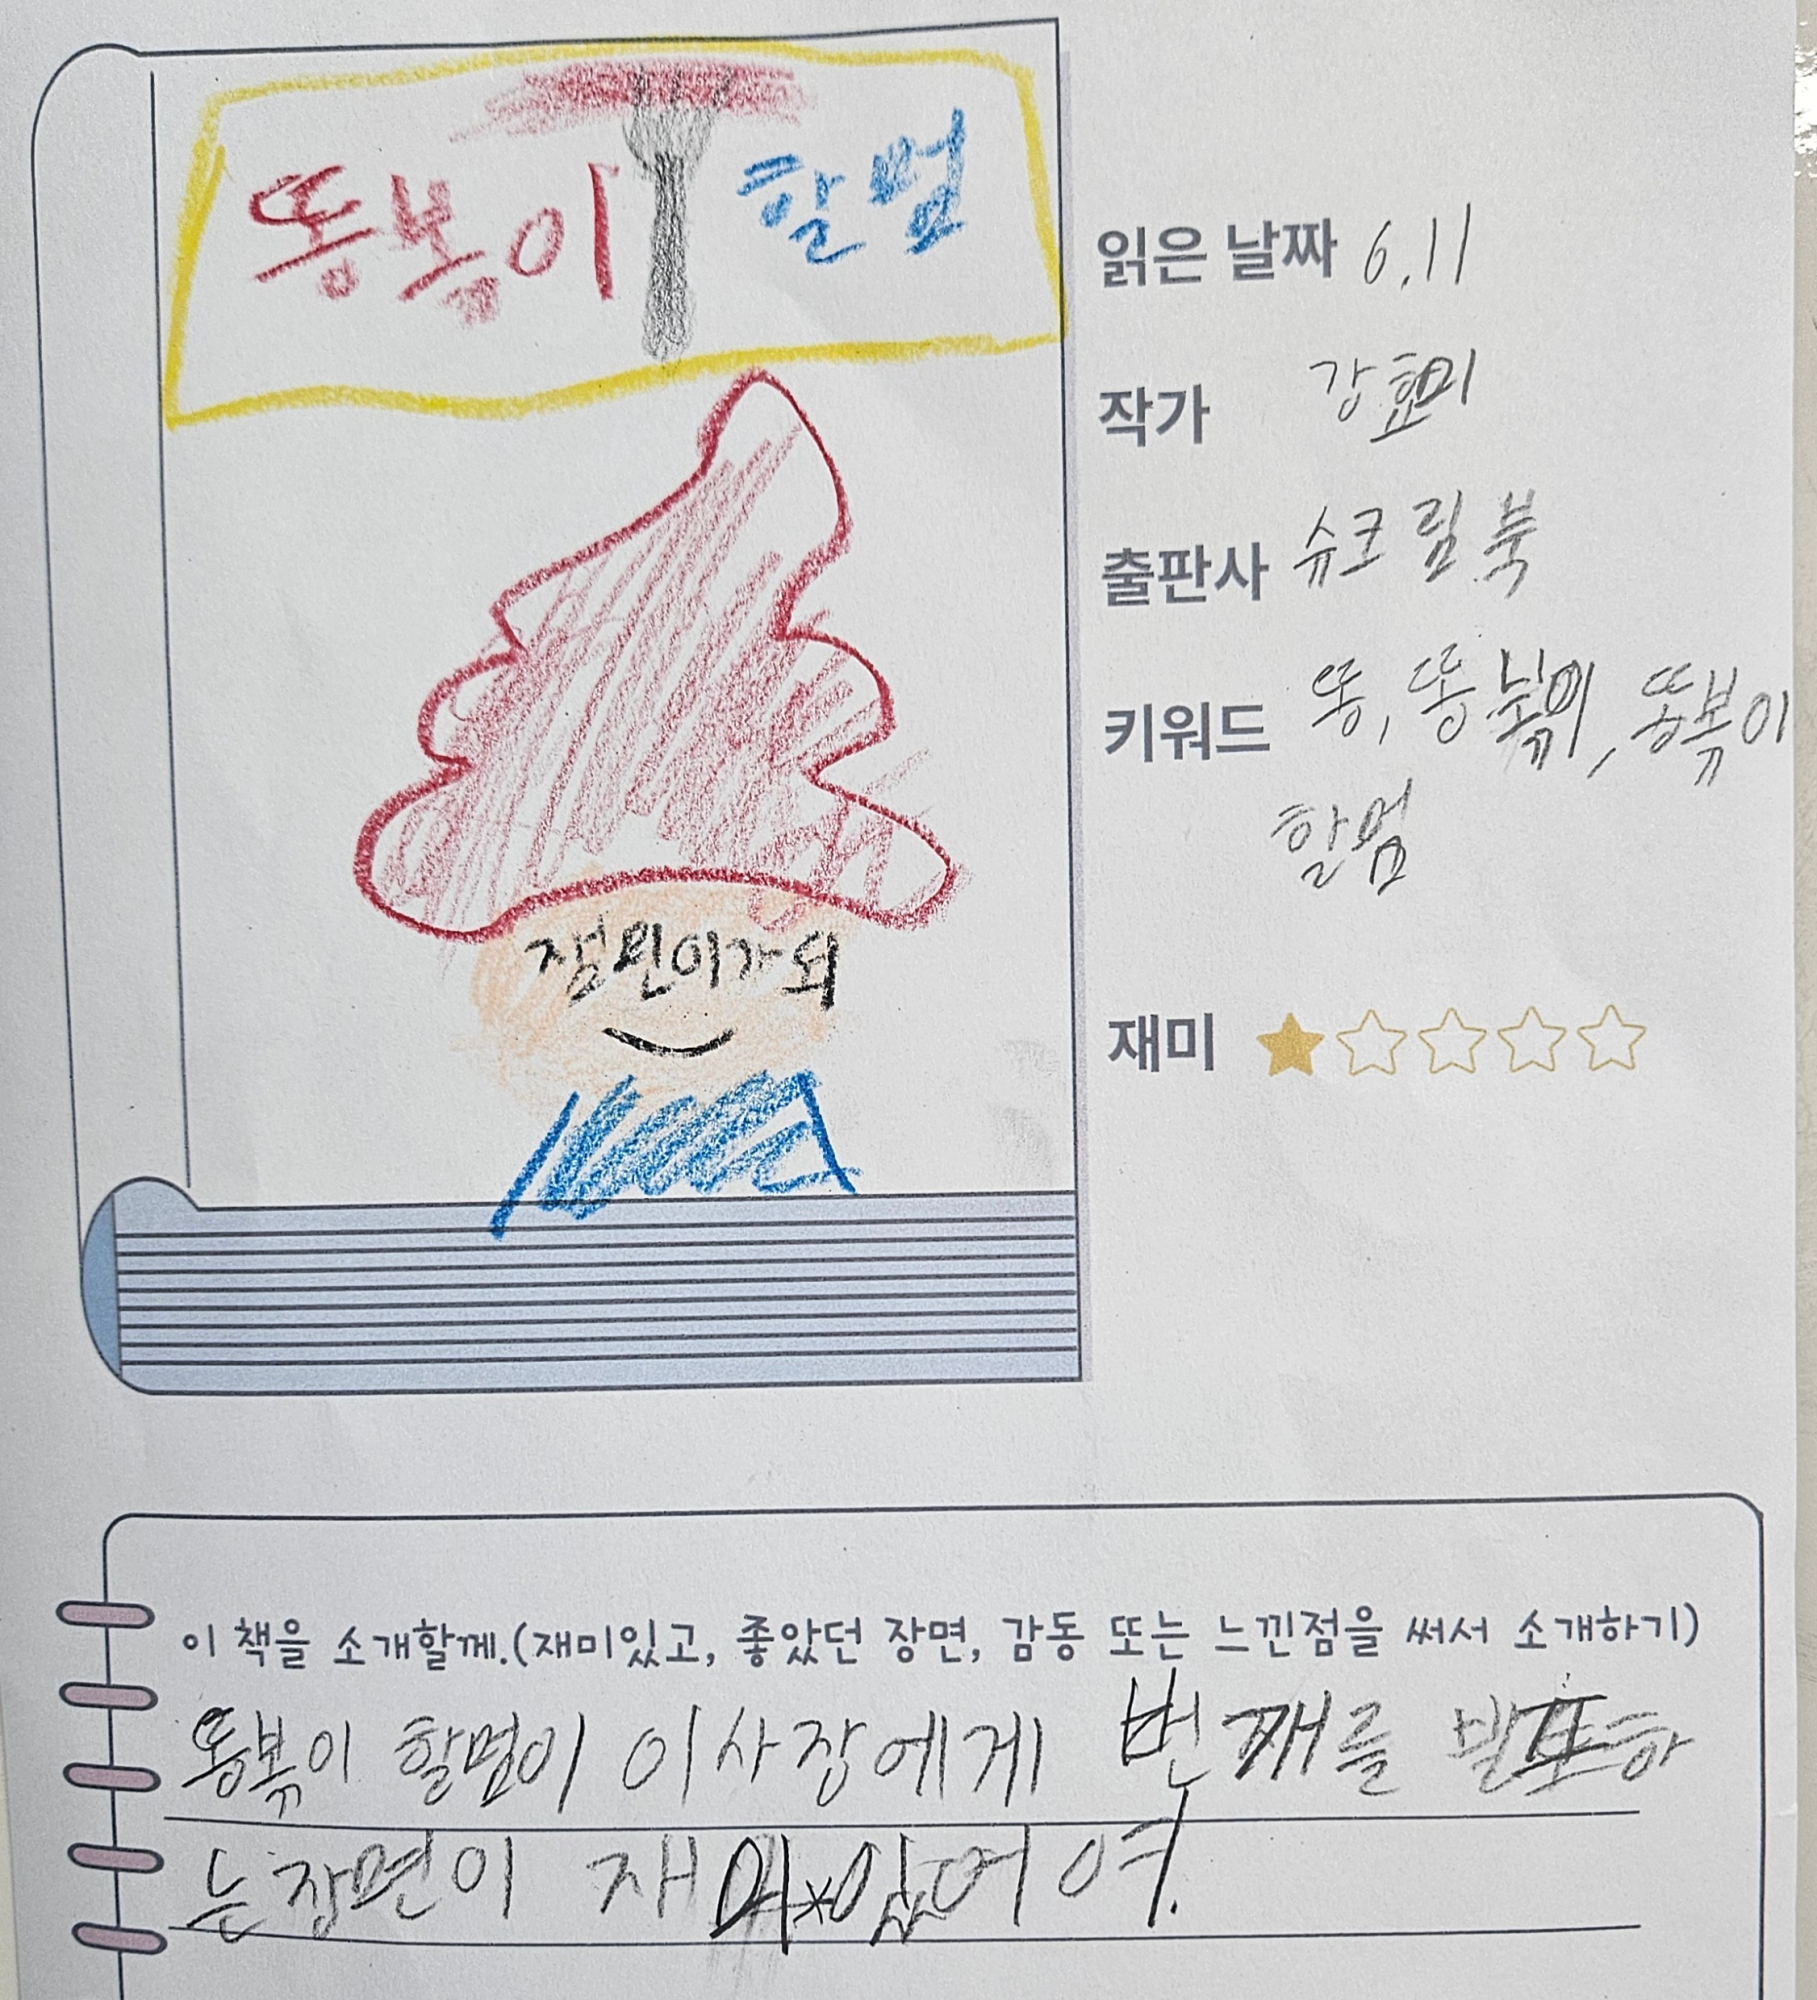 똥볶이 할멈
읽은 날짜 6.11
작가 강효미
출판사 슈크림북
키워드 똥, 똥볶이, 똥볶이
할멈
재미
이 책을 소개할께.(재미있고, 좋았던 장면, 감동 또는 느낀점을 써서 소개하기)
똥볶이 할멈이 이사장에게 번째를
는 장면이 재미있어여.